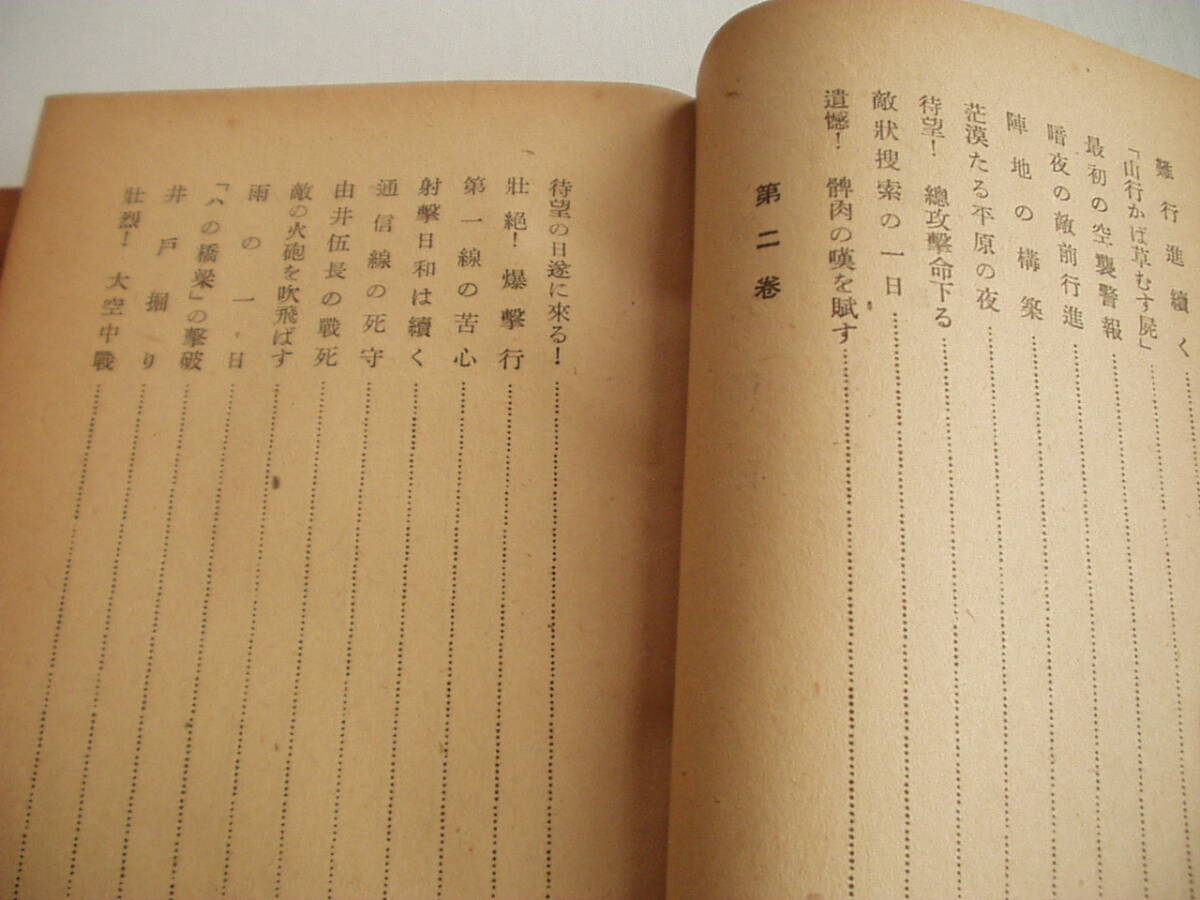 難行進續く
「山行かば草むす屍」
最初の空襲警報
暗夜の敵前行進
陣地の構築
茫漠たる平原の夜
待望！ 總攻擊命下る
敵狀搜索の一日
遺憾！ 髀肉の嘆を賦す
第二卷
待望の日遂に來る！
壯絕！爆擊行
第一線の苦心
射擊日和は續く
通信線の死守
由井伍長の戰死
敵の火砲を吹飛ばす
雨の一日
「ハの橋梁」の擊破
井戶掘り
壯烈！ 大空中戰